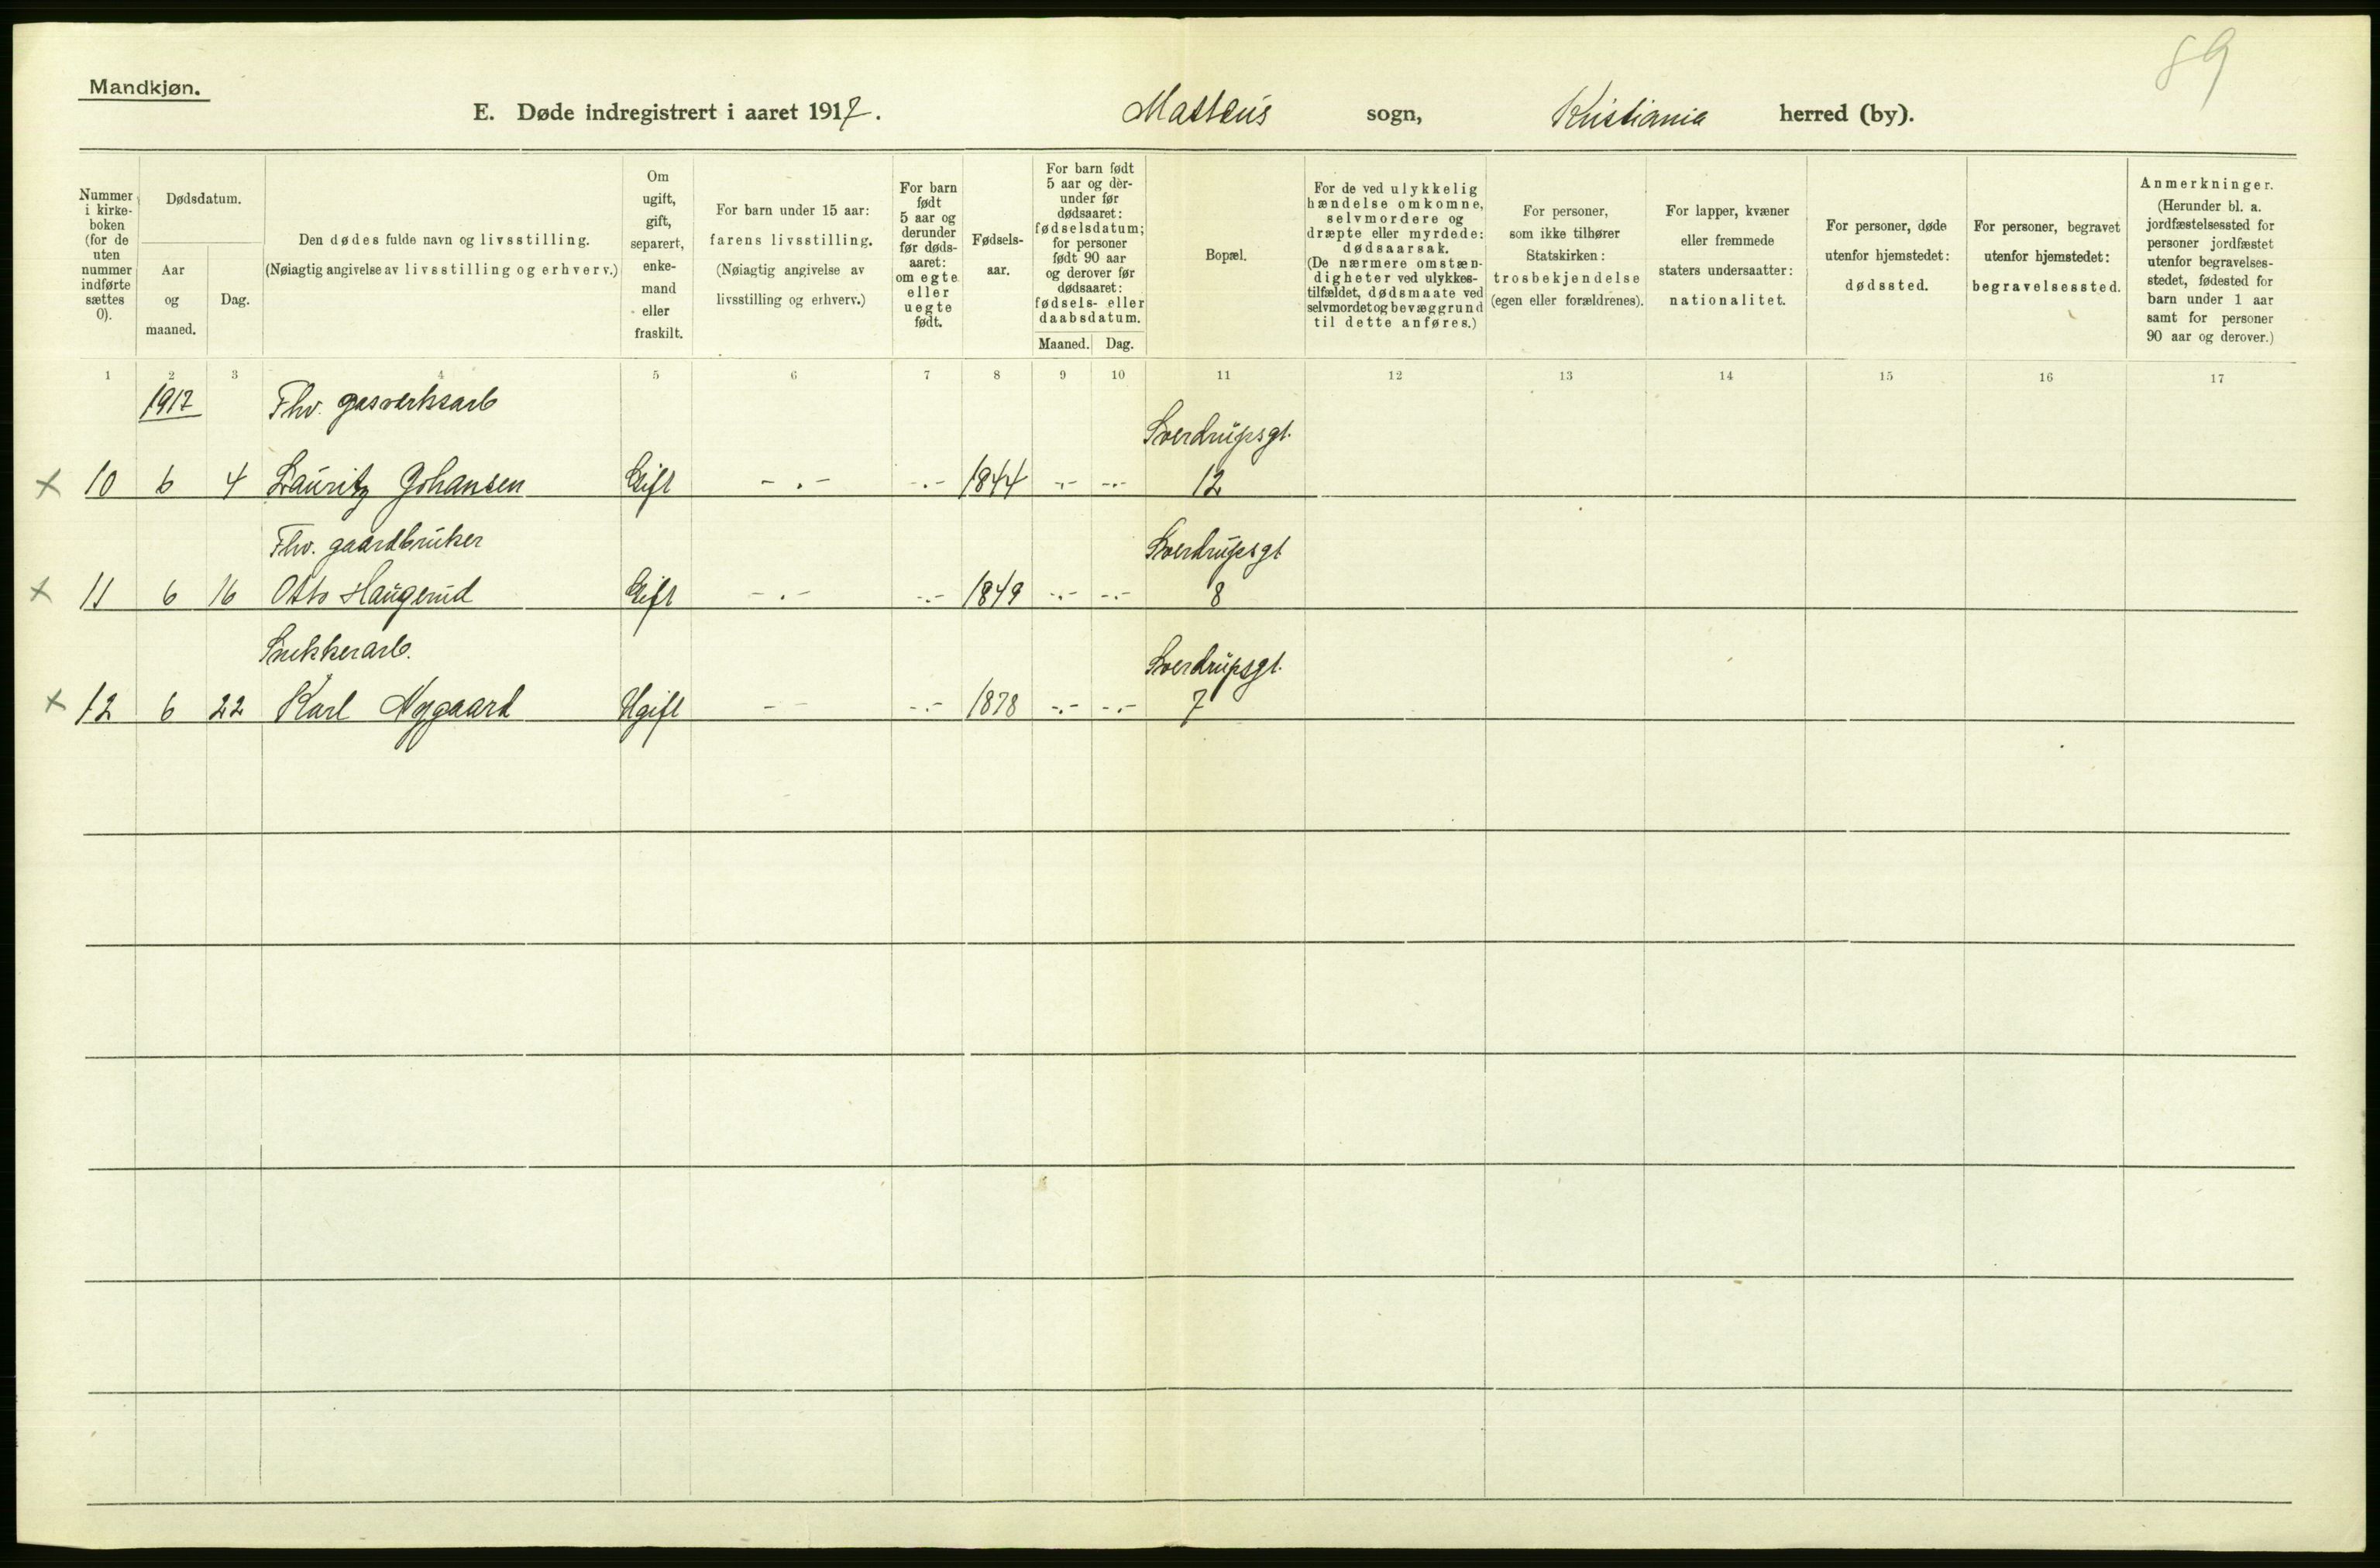 89
Mandkjøn.
E. Døde indregistrert i aaret 1917. Matteus sogn, Kristiania herred (by).
Nummer i kirke- boken (for de uten nummer indførte sættes 0).
Dødsdatum.
Aar og maaned.
Dag.
Den dødes fulde navn og livsstilling.
(Nøiagtig angivelse av livsstilling og erhverv.)
Om ugift, gift, separert, enke- mand eller fraskilt.
For barn under 15 aar:
farens livsstilling.
(Nøiagtig angivelse av
livsstilling og erhverv.)
For barn født 5 aar og derunder før døds- aaret: om egte eller uegte født.
Fødsels- aar.
For barn født 5 aar og der- under før dødsaaret: fødselsdatum; for personer født 90 aar og derover før dødsaaret: fødsels- eller daabsdatum.
Maaned. Dag.
Bopæl.
For de ved ulykkelig hændelse omkomne, selvmordere og dræpte eller myrdede: dødsaarsak. (De nærmere omstæn- digheter ved ulykkes- tilfældet, dødsmaate ved selvmordet og bevæggrund til dette anføres.)
For personer, som ikke tilhører Statskirken: trosbekjendelse (egen eller forældrenes).
For lapper, kvæner eller fremmede staters undersaatter: nationalitet.
For personer, døde utenfor hjemstedet: dødssted.
For personer, begravet utenfor hjemstedet: begravelsessted.
Anmerkninger. (Herunder bl. a. jordfæstelsessted for personer jordfæstet utenfor begravelses- stedet, fødested for barn under 1 aar samt for personer 90 aar og derover.)
1 2 3 4 5 6 7 8 9 10 11 12 13 14 15 16 17
1917 Fhv. gasverksarb Sverdrupsgt.
x 10 6 4 Lauritz Johansen Gift - . - -.- 1844 -.- -.- 12
Fhv. gaardbruker Sverdrupsgt
x 11 6 16 Otto Haugerud Gift - . - -.- 1849 -.- -.- 8
Snekkerarb. Sverdrupsgt.
x 12 6 22 Karl Nygaard Ugift - - -.- 1878 -.- -.- 7